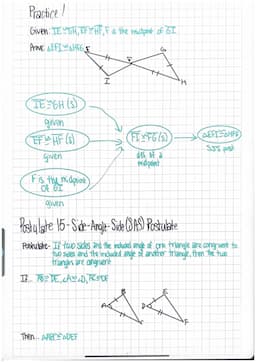 Practice!
Given: IE ≅ GH, EF ≅ HF, F is the midpoint of GI
Prove: △EFI ≅ △HFG
E
G
F
I
H
IE ≅ GH (S)
given
EF ≅ HF (S)
given
F is the midpoint
of GI
given
FI ≅ FG (S)
def of a
midpoint
△EFI ≅ △HFG
SSS post
Postulate 15 - Side-Angle-Side (SAS) Postulate
Postulate - If two sides and the included angle of one triangle are congruent to
two sides and the included angle of another triangle, then the two
triangles are congruent
If... AB ≅ DE, ∠A ≅ ∠D, AC ≅ DF
B
A
C
E
D
F
Then... △ABC ≅ △DEF